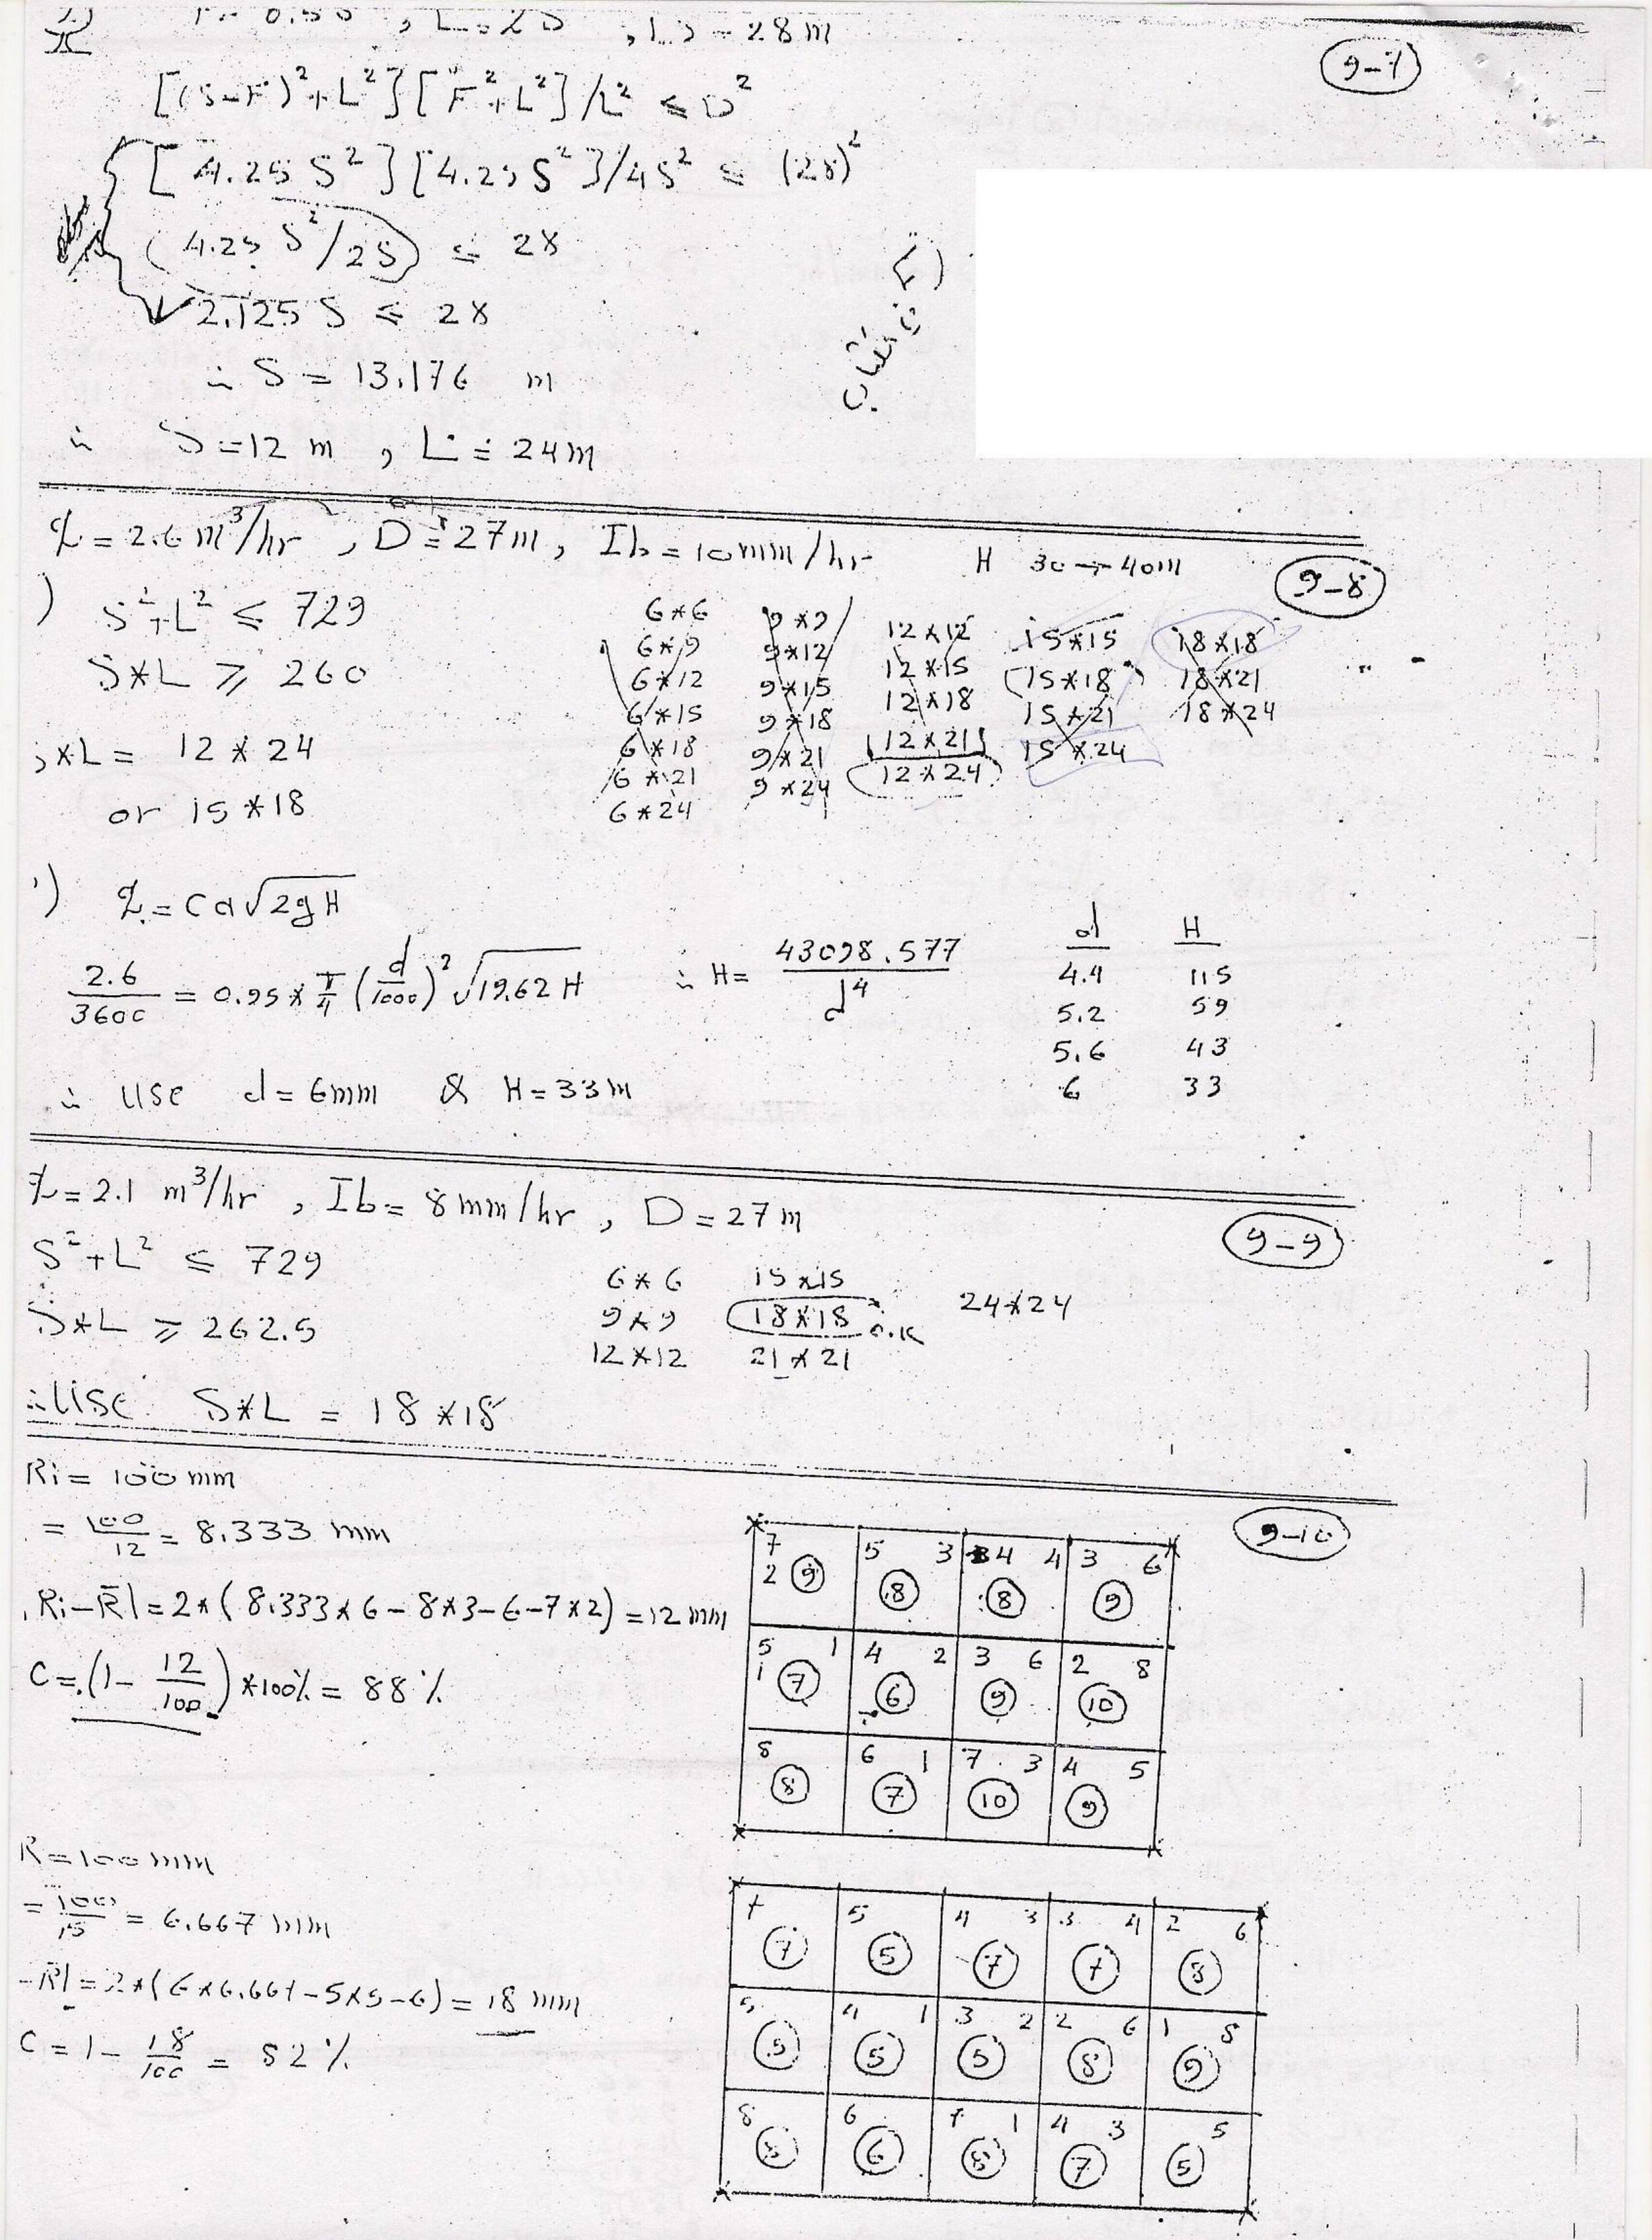 , L = 2S , D = 28 m
9-7
[(S-F)² + L²][F² + L²]/L² ≤ D²
[4.25 S²][4.25 S²]/4S² ≤ (28)²
(4.25 S²/2S) ≤ 28
2.125 S ≤ 28
∴ S = 13.176 m
∴ S = 12 m , L = 24 m
q = 2.6 m³/hr , D = 27 m , Ib = 10 mm/hr H 30 → 40 m
9-8
) S² + L² ≤ 729
S*L ≥ 260
S*L = 12 * 24
or 15 * 18
6*6 9*9 12*12 15*15 18*18
6*9 9*12 12*15 (15*18) 18*21
6*12 9*15 12*18 15*21 18*24
6*15 9*18 12*21 15*24
6*18 9*21 12*24
6*21 9*24
6*24
) q = Ca√2gH
2.6/3600 = 0.95 * π/4 (d/1000)² √19.62 H ∴ H = 43098.577/d⁴
d H
4.4 115
5.2 59
5.6 43
6 33
∴ Use d = 6mm & H = 33 m
q = 2.1 m³/hr , Ib = 8 mm/hr , D = 27 m
9-9
S² + L² ≤ 729
S*L ≥ 262.5
6*6 15*15
9*9 18*18 o.k 24*24
12*12 21*21
∴ Use S*L = 18*18
9-10
Ri = 100 mm
= 100/12 = 8.333 mm
|Ri-R̄| = 2*(8.333*6 - 8*3 - 6 - 7*2) = 12 mm
C = (1 - 12/100) *100% = 88 %
7 5 3 4 4 3 6
2 9 8 8 9
5 1 4 2 3 6 2 8
1 7 6 9 10
8 6 1 7 3 4 5
8 7 10 9
R = 100 mm
= 100/15 = 6.667 mm
-R̄| = 2*(6*6.667 - 5*5 - 6) = 18 mm
C = 1 - 18/100 = 82 %
7 5 4 3 3 4 2 6
7 5 7 7 8
5 4 1 3 2 2 6 1 8
5 5 5 8 9
8 6 7 1 4 3 5
8 6 8 7 5